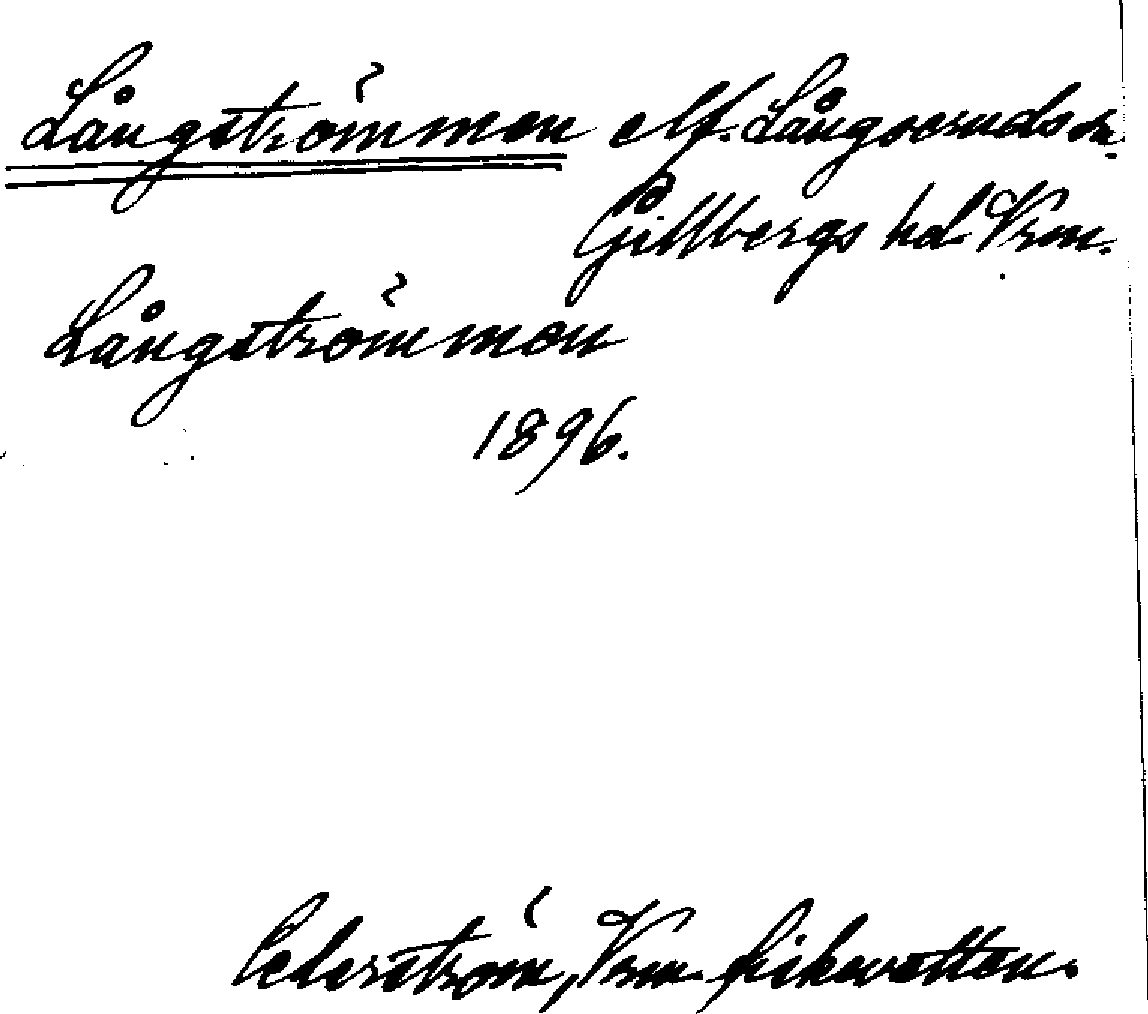 Långströmmen elf. Långseruds sn.
Gillbergs hd Vrm.
Långströmmen
1896.
Cederström, Vrm. fiskevatten.